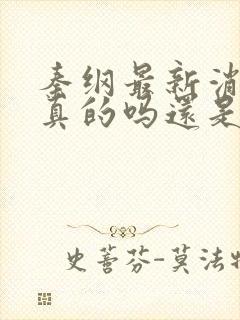 秦纲最新消
真的吗还是
史蕾芬-莫法特